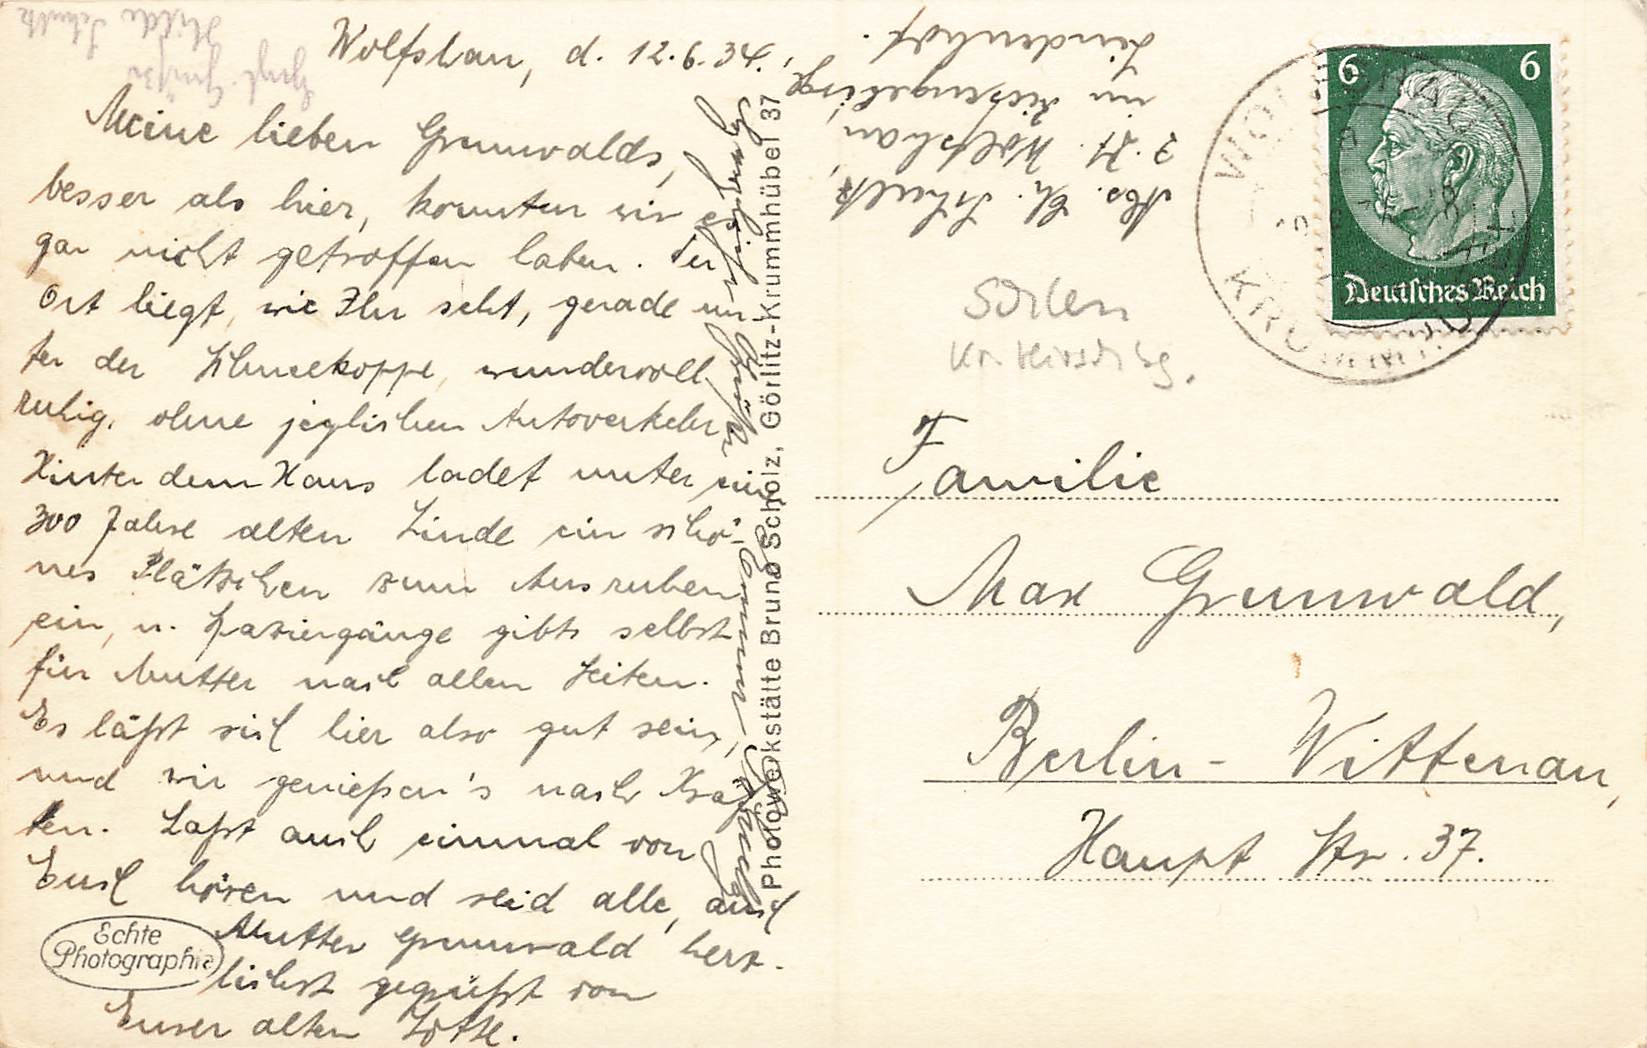 Wolfshau, d. 12.6.34.
Meine lieben Grunwalds,
besser als hier, konnten wir es
gar nicht getroffen haben. Der
Ort liegt, wie Ihr seht, gerade un-
ter der Schneekoppe, wundervoll
ruhig, ohne jeglichen Autoverkehr.
Hinter dem Haus ladet unter ein
300 Jahre alten Linde ein schö-
nes Plätzchen zum Ausruhen
ein, u. Spaziergänge gibts selbst
für Mutter nach allen Seiten.
Es läßt sich hier also gut sein,
und wir genießen's nach Kräf-
ten. Laßt auch einmal von
Euch hören und seid alle, auch
Mutter Grunwald herz-
lichst gegrüßt von
Eurer alten Lotte.
Herzl. Grüße
Hilde Schultz
Abs. Ch. Schultz,
z. Zt. Wolfshau,
im Riesengebirge
Lindenhof.
Echte
Photographie
Photowerkstätte Bruno Scholz, Görlitz-Krummhübel 37
6 6
Deutsches Reich
Schlen
Kr. Hirschbg.
Familie
Max Grunwald,
Berlin-Wittenau,
Haupt Str. 37.